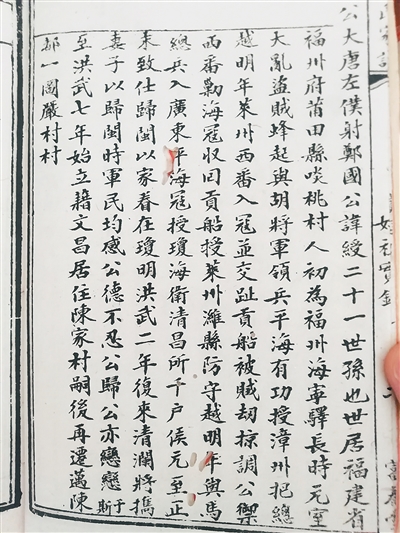 公大唐左僕射鄭國公諱綬二十一世孫也世居福建省
福州府莆田縣啖桃村人初為福州海寧驛長時元室
大亂盜賊蜂起與胡將軍領兵平海有功授漳州把總
越明年萊州西番入寇並交趾貢船被賊刼掠調公禦
西番勦海寇収回貢船授萊州濰縣防守越明年與馬
總兵入廣東平海寇授瓊海衛清昌所千戶侯元至正
末致仕歸閩以家眷在瓊明洪武二年復來清瀾將攜
妻子以歸閩時軍民均感公德不忍公歸公亦戀戀于斯
至洪武七年始立籍文昌居住陳家村嗣後再遷邁陳
都一圖嚴村村